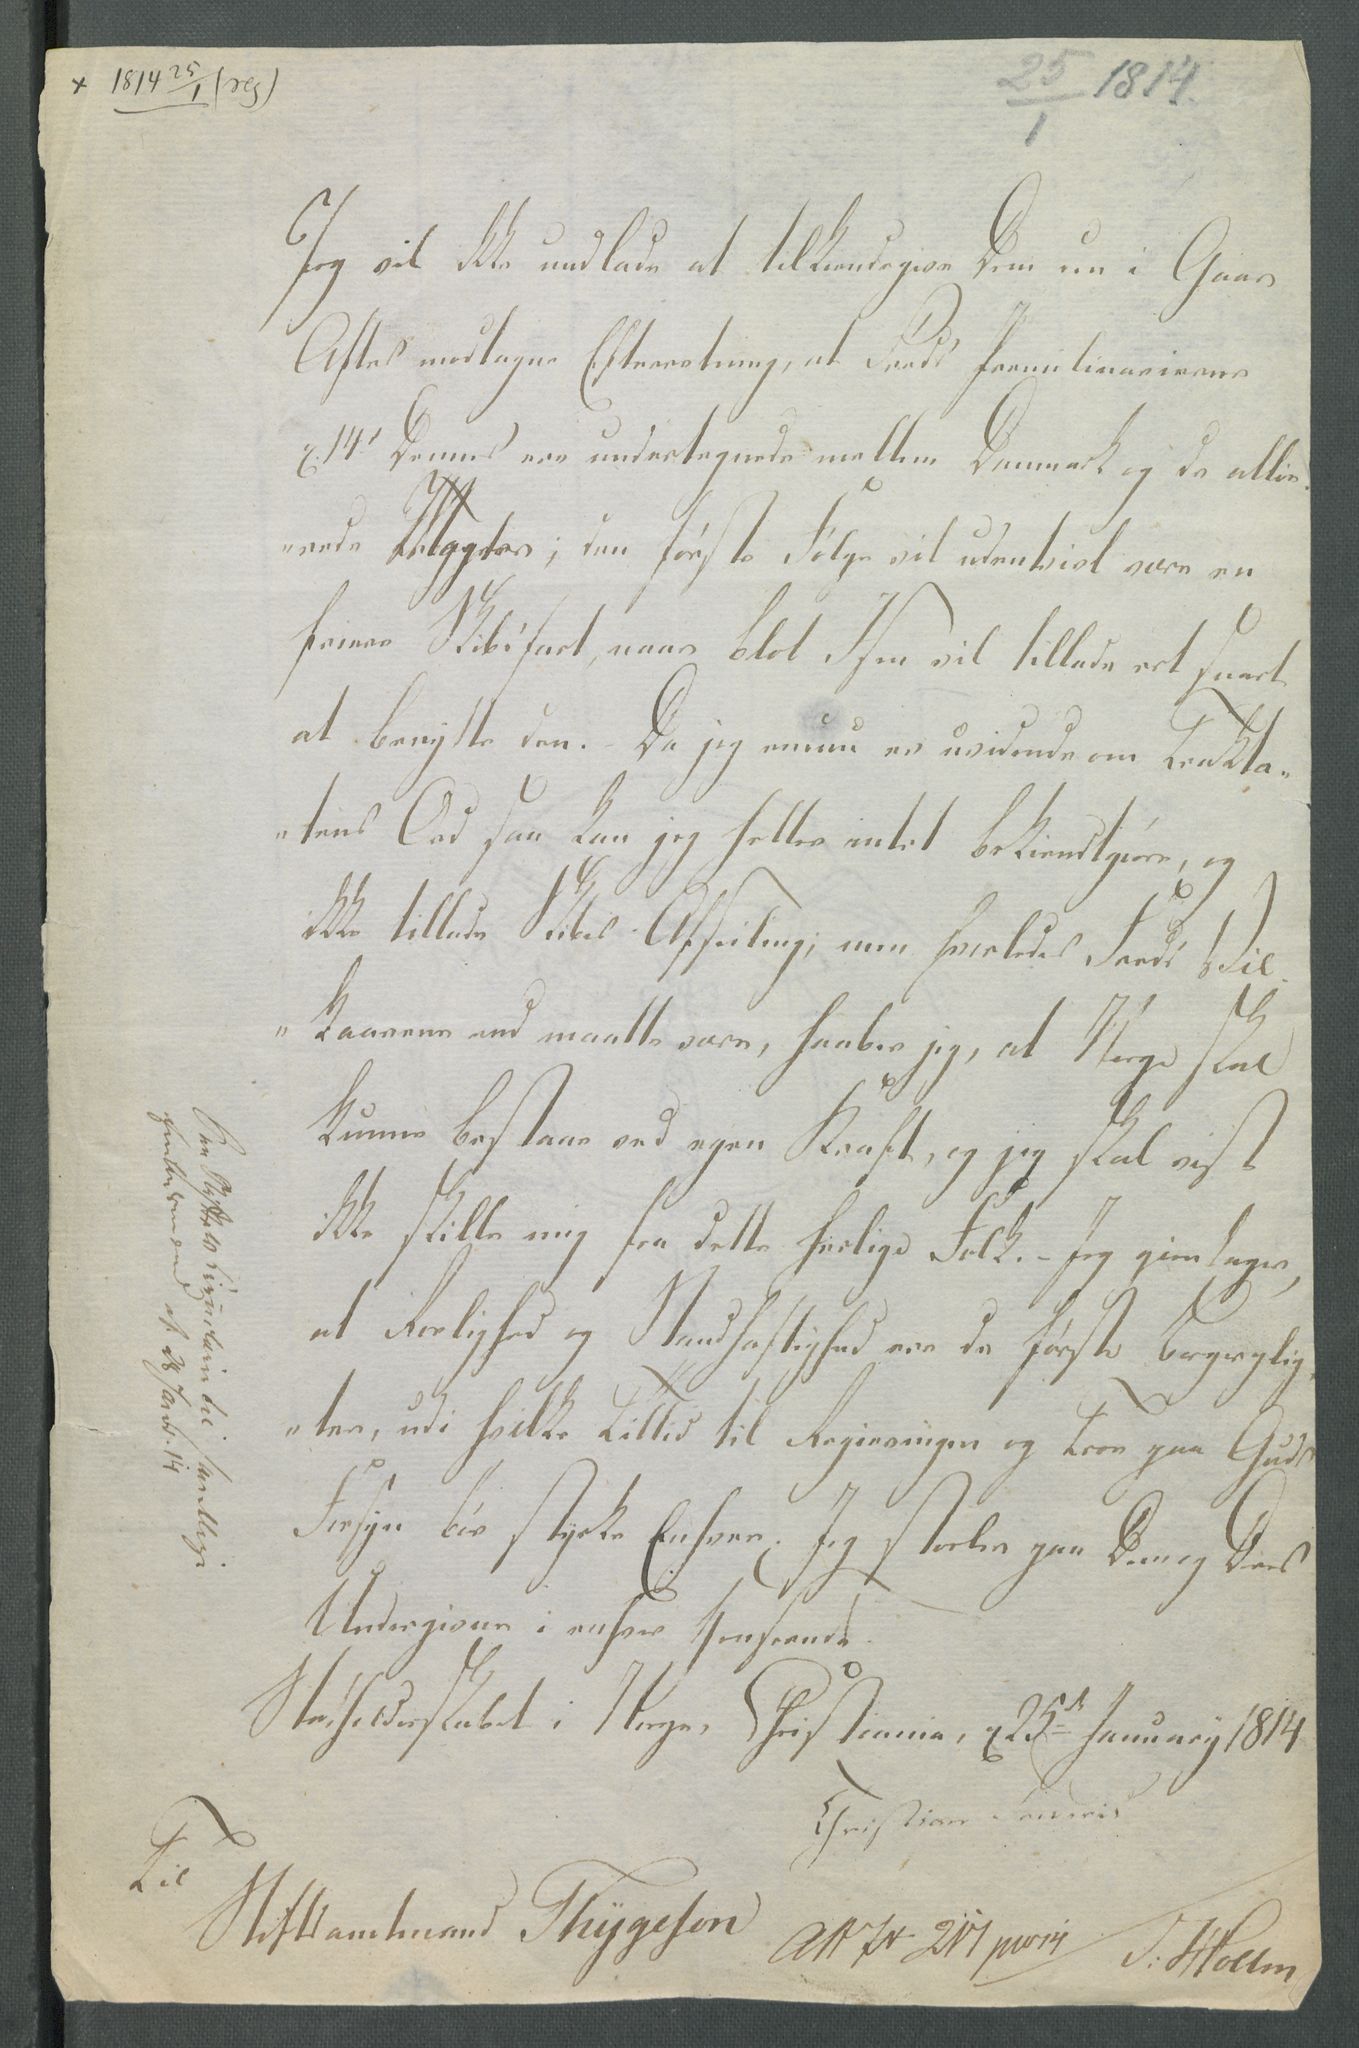 x 1814 25/1 (reg)
25/1 1814.
Jeg vil ikke undlade at tilkiendegive Dem en i Gaar
Aftes modtagne Efterretning, at Freds Preliminairerne
14' Dennes ere undertegnede mellem Danmark og de allie-
"rede Magter; den første Følge vil udentvivl være en
friere Skibsfart, naar blot Isen vil tillade ret snart
at benytte den. - Da jeg ennu er uvidende om Trakta-
"tens Ord saa kan jeg heller intet bekiendtgiøre, og
ikke tillade Skibes Afseiling; men hvorledes Freds Vil-
"kaarene end maatte være, haaber jeg, at Norge skal
kunne bestaae ved egen Kraft, og jeg skal vist
ikke skille mig fra dette herlige Folk. - Jeg gientager,
at Roelighed og Standhaftighed ere de første Borgerplig-
"ter, udi hvilke Tillid til Regieringen og Troe paa Guds
Forsyn bør styrke Enhver. Jeg stoler paa Dem og Deres
Undergivne i enhver Henseende.
Statholderskabet i Norge, Christiania, 25de January 1814
Christian Frederik
Til
Stiftsamtmand Thygeson
T. Holm
af 28 Jan. 14